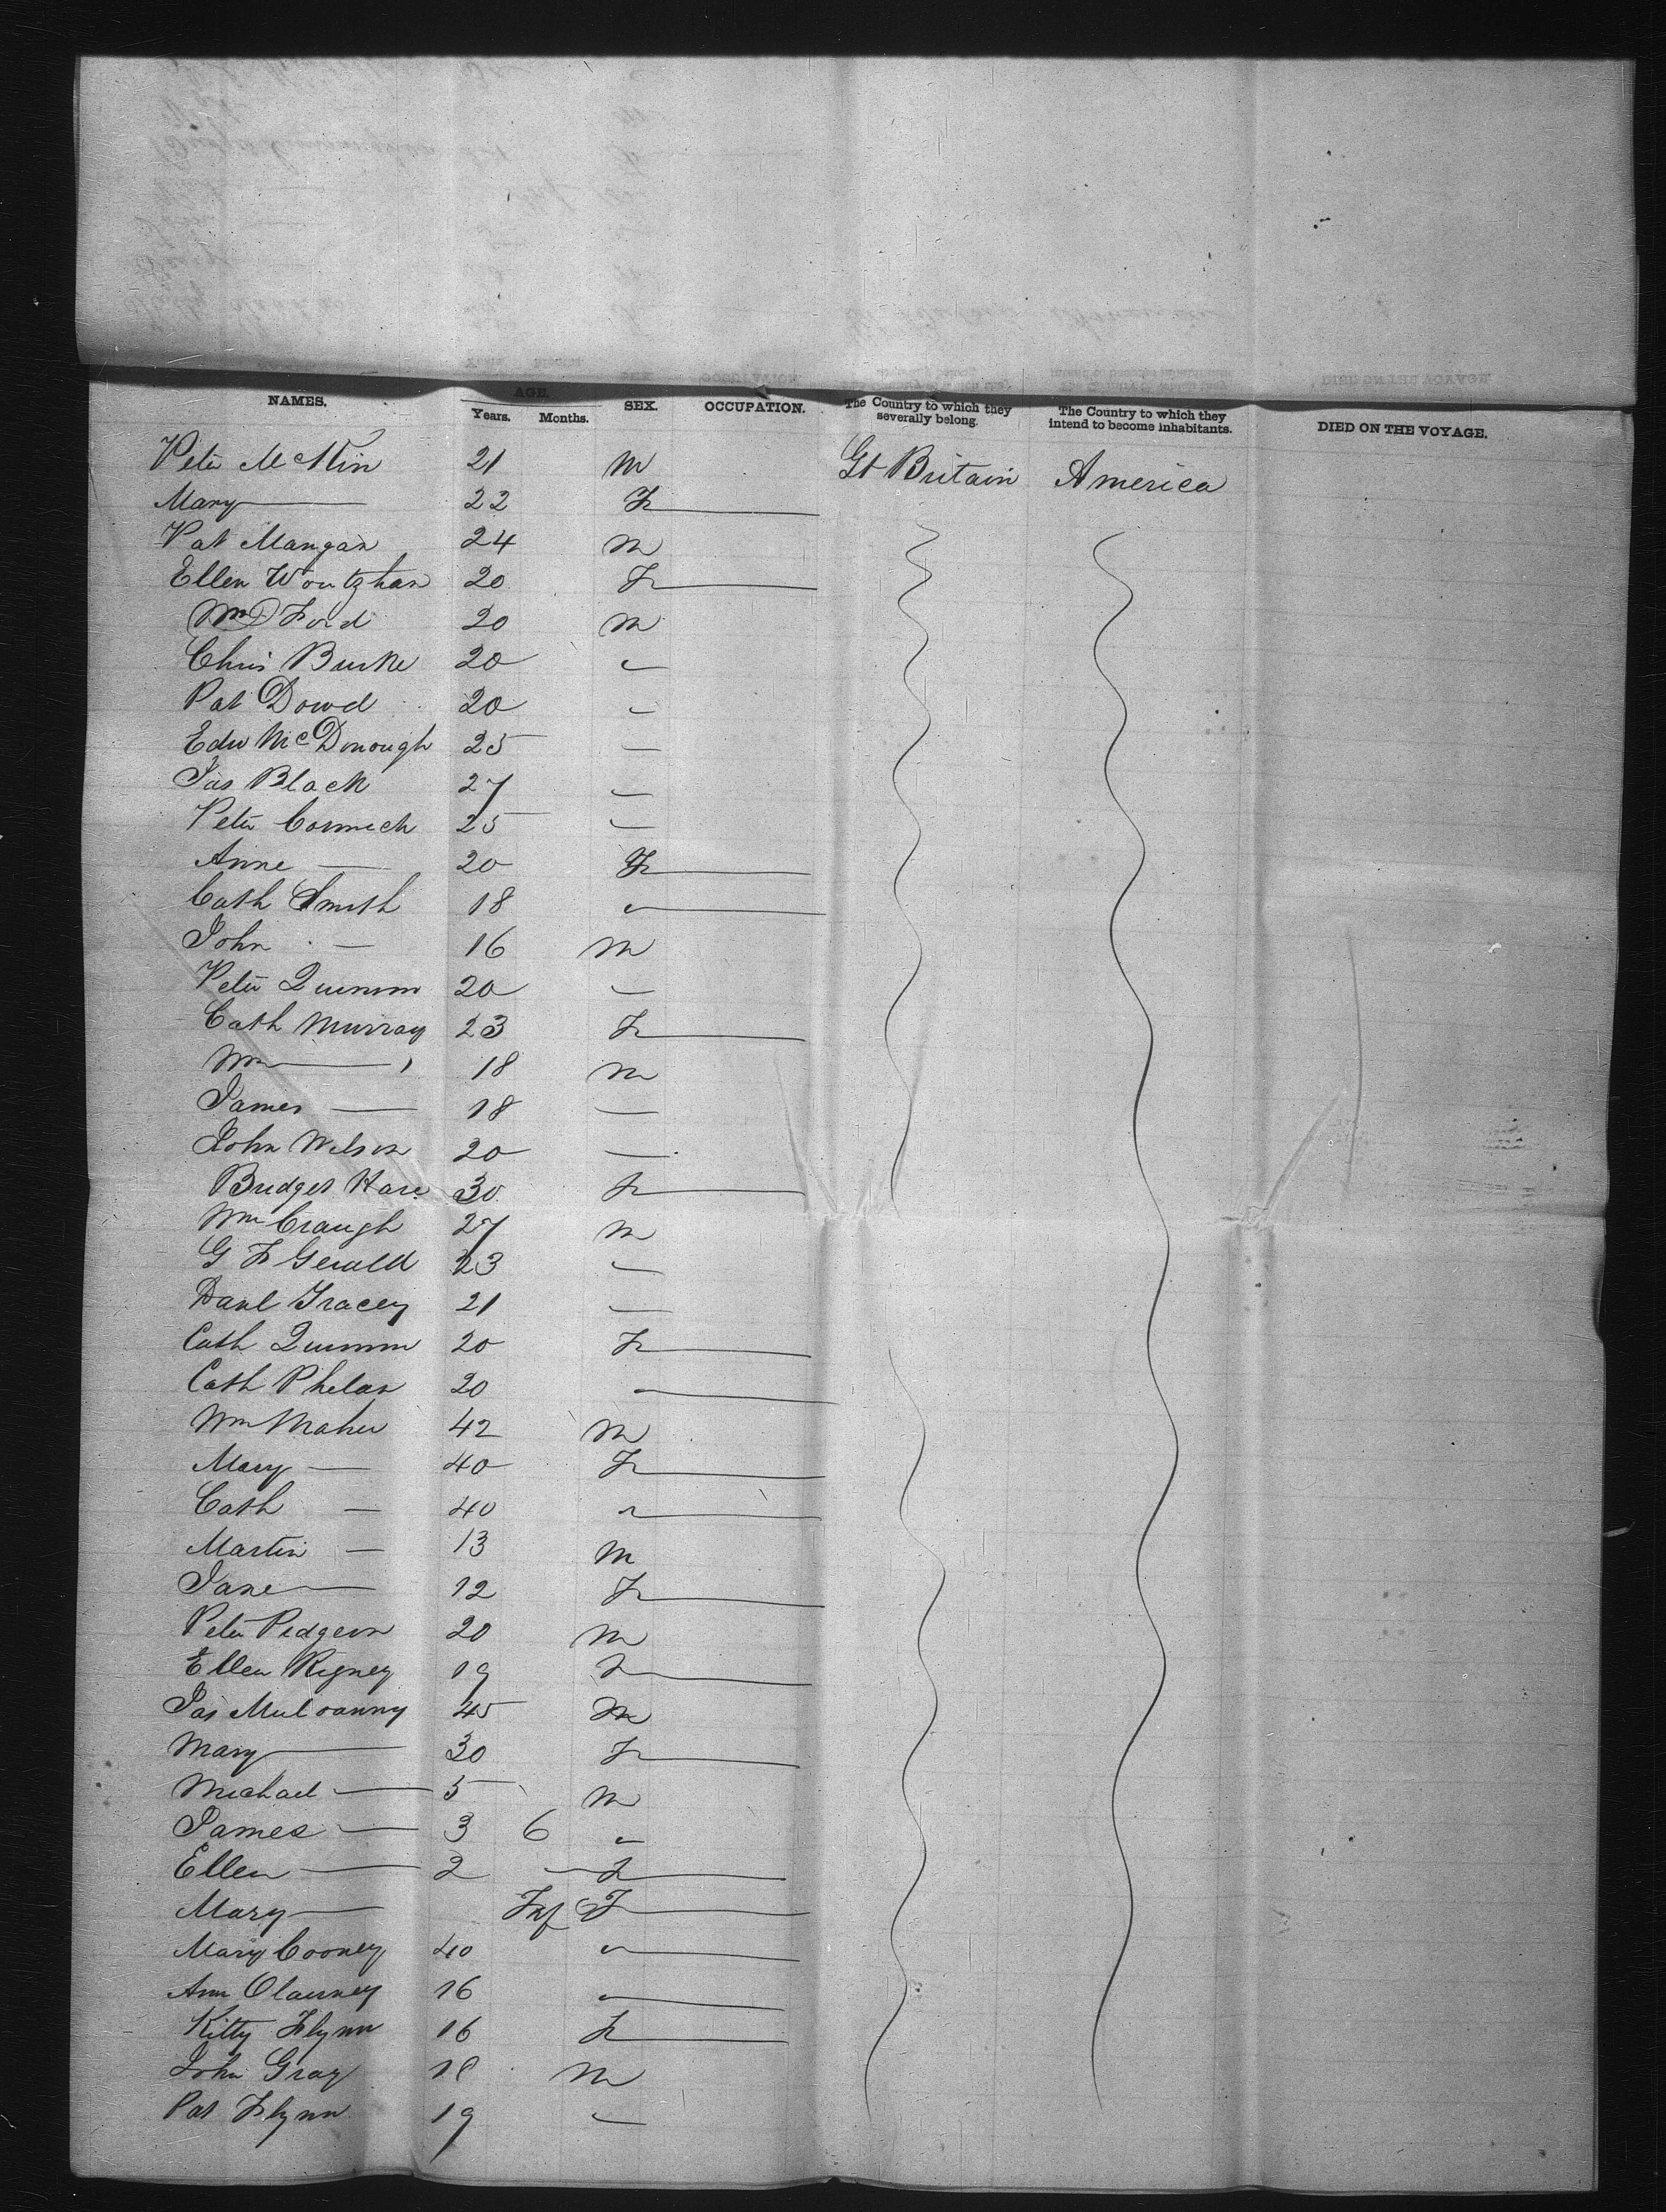 NAMES. AGE. Years. Months. SEX. OCCUPATION. The Country to which they severally belong. The Country to which they intend to become inhabitants. DIED ON THE VOYAGE.
Peter 21 m Gt Britain America
Mary — 22 F
Pat Mangan 24 m
Ellen 20 F
Wm Ford 20 m
Chris Burke 20 "
Pat Dowd 20 "
Edw McDonough 25 —
Jas Black 27 "
Peter Cormick 25 "
Anne — 20 F
Cath Smith 18 "
John — 16 m
Peter Quinnn 20 "
Cath Murray 23 F
Wm — 18 m
James — 18 —
John Wilson 20 —
Bridget Hare 30 F
Wm Craugh 27 m
G F Gerald 23 "
Danl Tracey 21 —
Cath Quinnn 20 F
Cath Phelan 20 "
Wm Maher 42 m
Mary — 40 F
Cath — 40 "
Martin — 13 m
Jane — 12 F
Peter Pidgeon 20 m
Ellen Rigney 19 F
Jas Muloanny 45 m
Mary — 30 F
Michael — 5 m
James — 3 6 "
Ellen — 2 — F
Mary — Inf F
Mary Cooney 40 "
Ann Olaurney 16 "
Kitty Flynn 16 F
John Gray 18 m
Pat Flynn 19 "